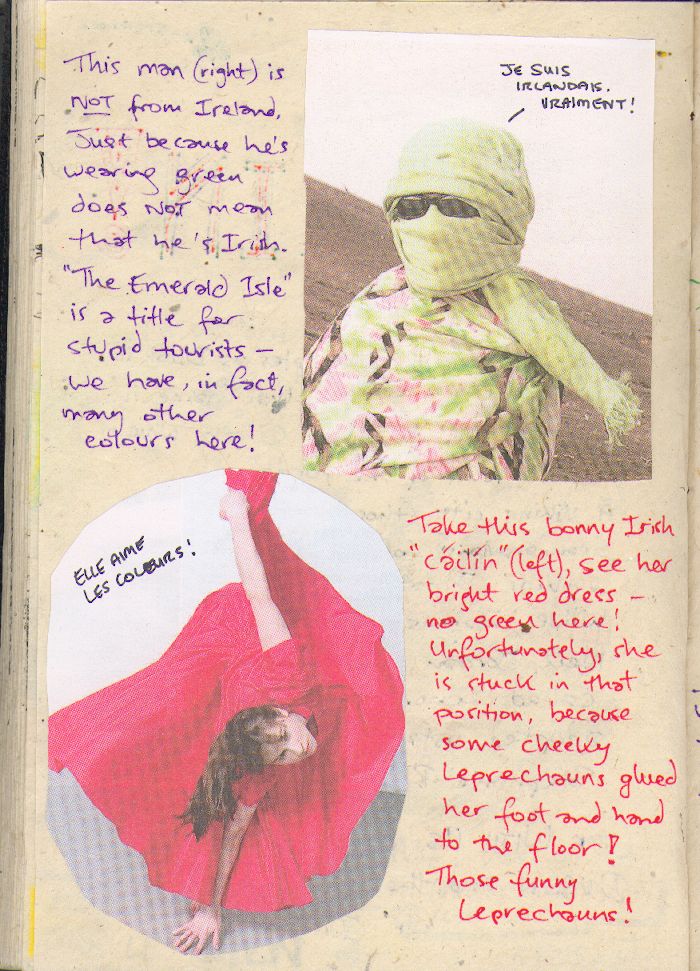 This man (right) is
NOT from Ireland.
Just because he's
wearing green
does NOT mean
that he's Irish.
"The Emerald Isle"
is a title for
stupid tourists –
we have, in fact,
many other
colours here!
JE SUIS
IRLANDAIS.
VRAIMENT!
ELLE AIME
LES COLEURS!
Take this bonny Irish
"cailín" (left), see her
bright red dress –
no green here!
Unfortunately, she
is stuck in that
position, because
some cheeky
Leprechauns glued
her foot and hand
to the floor!
Those funny
Leprechauns!